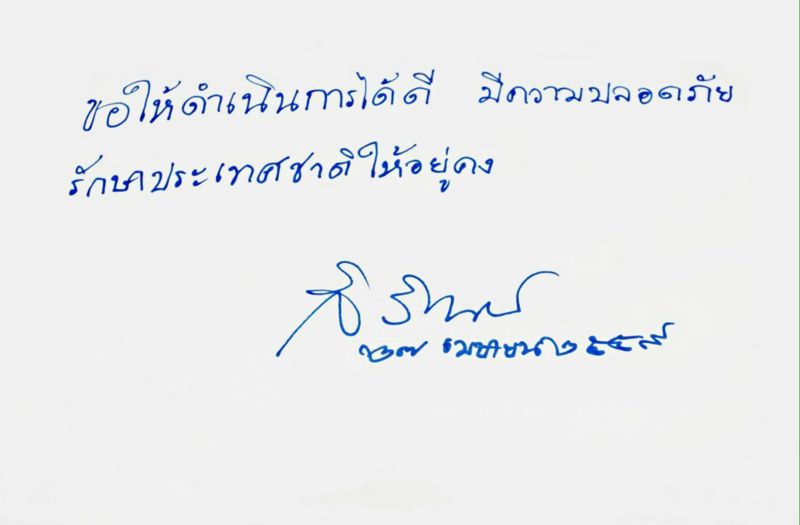 ขอให้ดำเนินการได้ดี มีความปลอดภัย
รักษาประเทศชาติให้อยู่คง
๒๗ เมษายน ๒๕๕๙